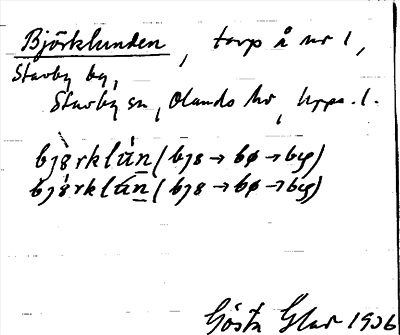 Björklunden, torp å nr 1,
Stavby by,
Stavby sn, Olands hd, Upps. l.
bjɵ̀rklún̲ (bjɵ → bø → by)
bjɵ̀rklún̲ (bjɵ → bø → by)
Gösta Glas 1936